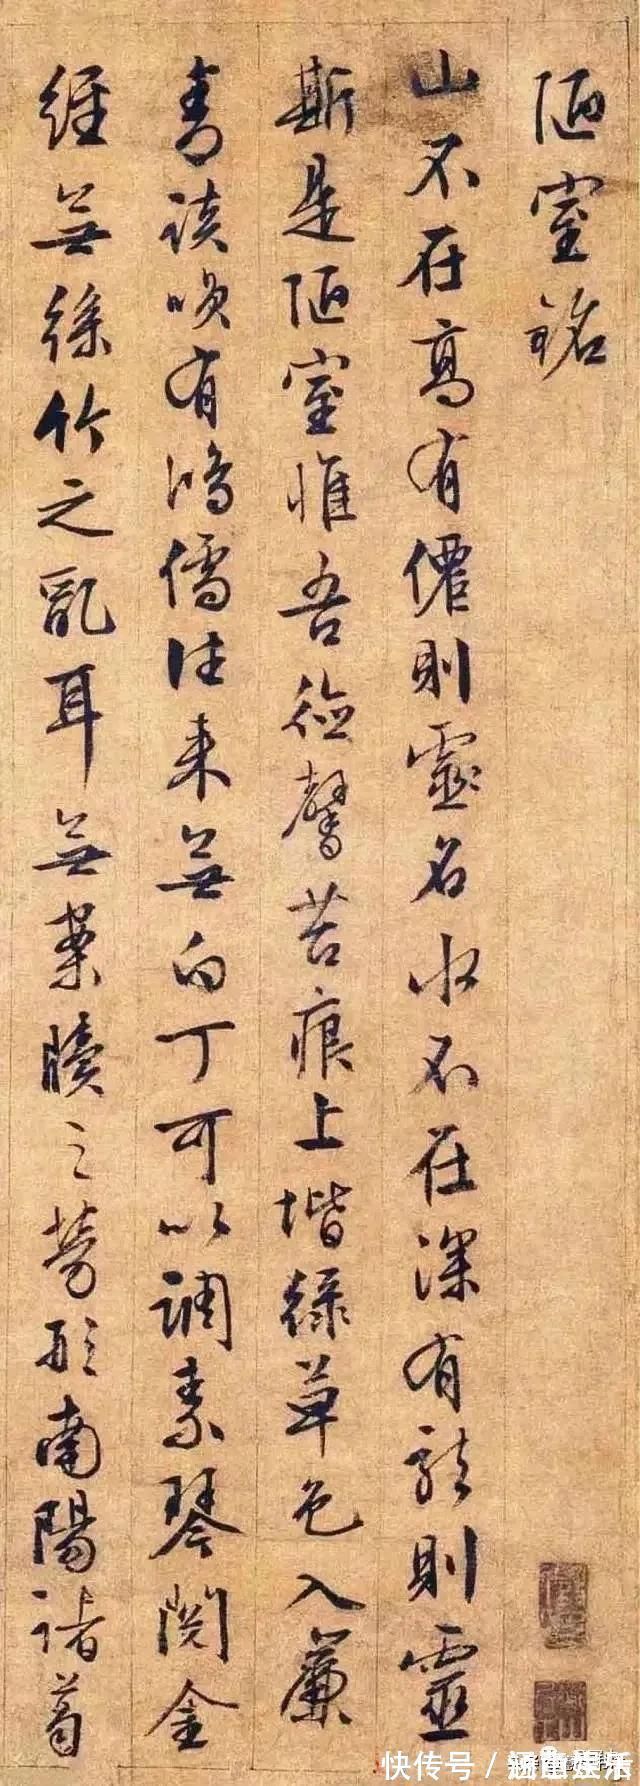 陋室銘
山不在高有僊則靈名水不在深有龍則靈
斯是陋室惟吾德馨苔痕上堦綠草色入簾
青談咲有鴻儒往来無白丁可以調素琴閱金
經無絲竹之亂耳無案牘之勞形南陽諸葛
快传号 /